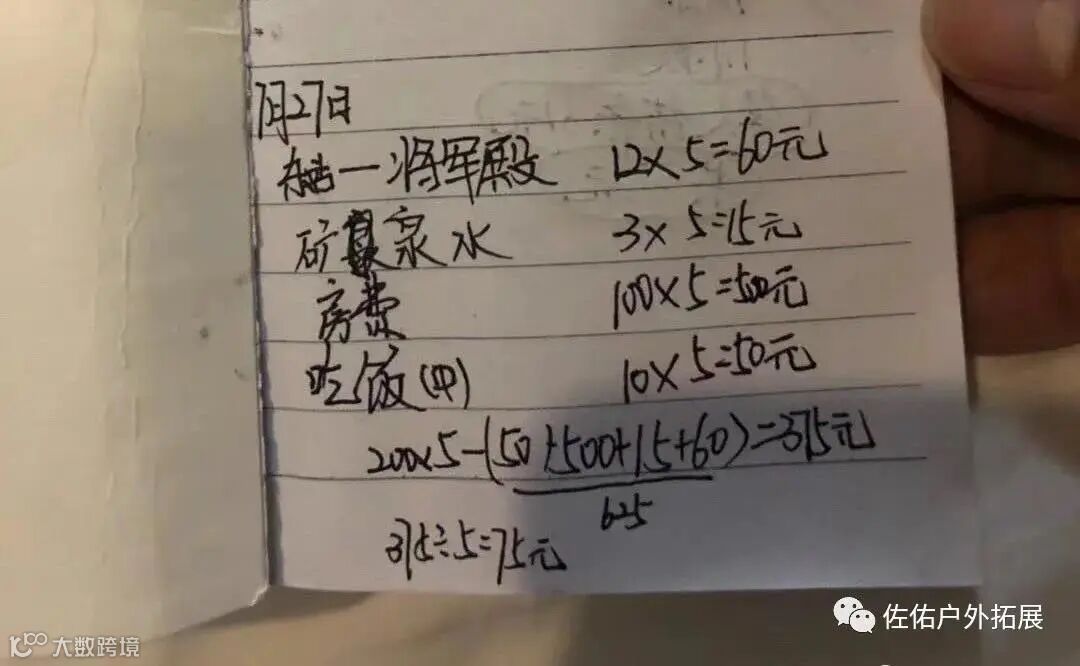 7月27日
一将军殿 12×5=60元
矿泉水 3×5=15元
房费 100×5=500元
吃饭(中) 10×5=50元
200×5-(50+500+15+60)=375元
625
375÷5=75元
佐佑户外拓展
大数跨境